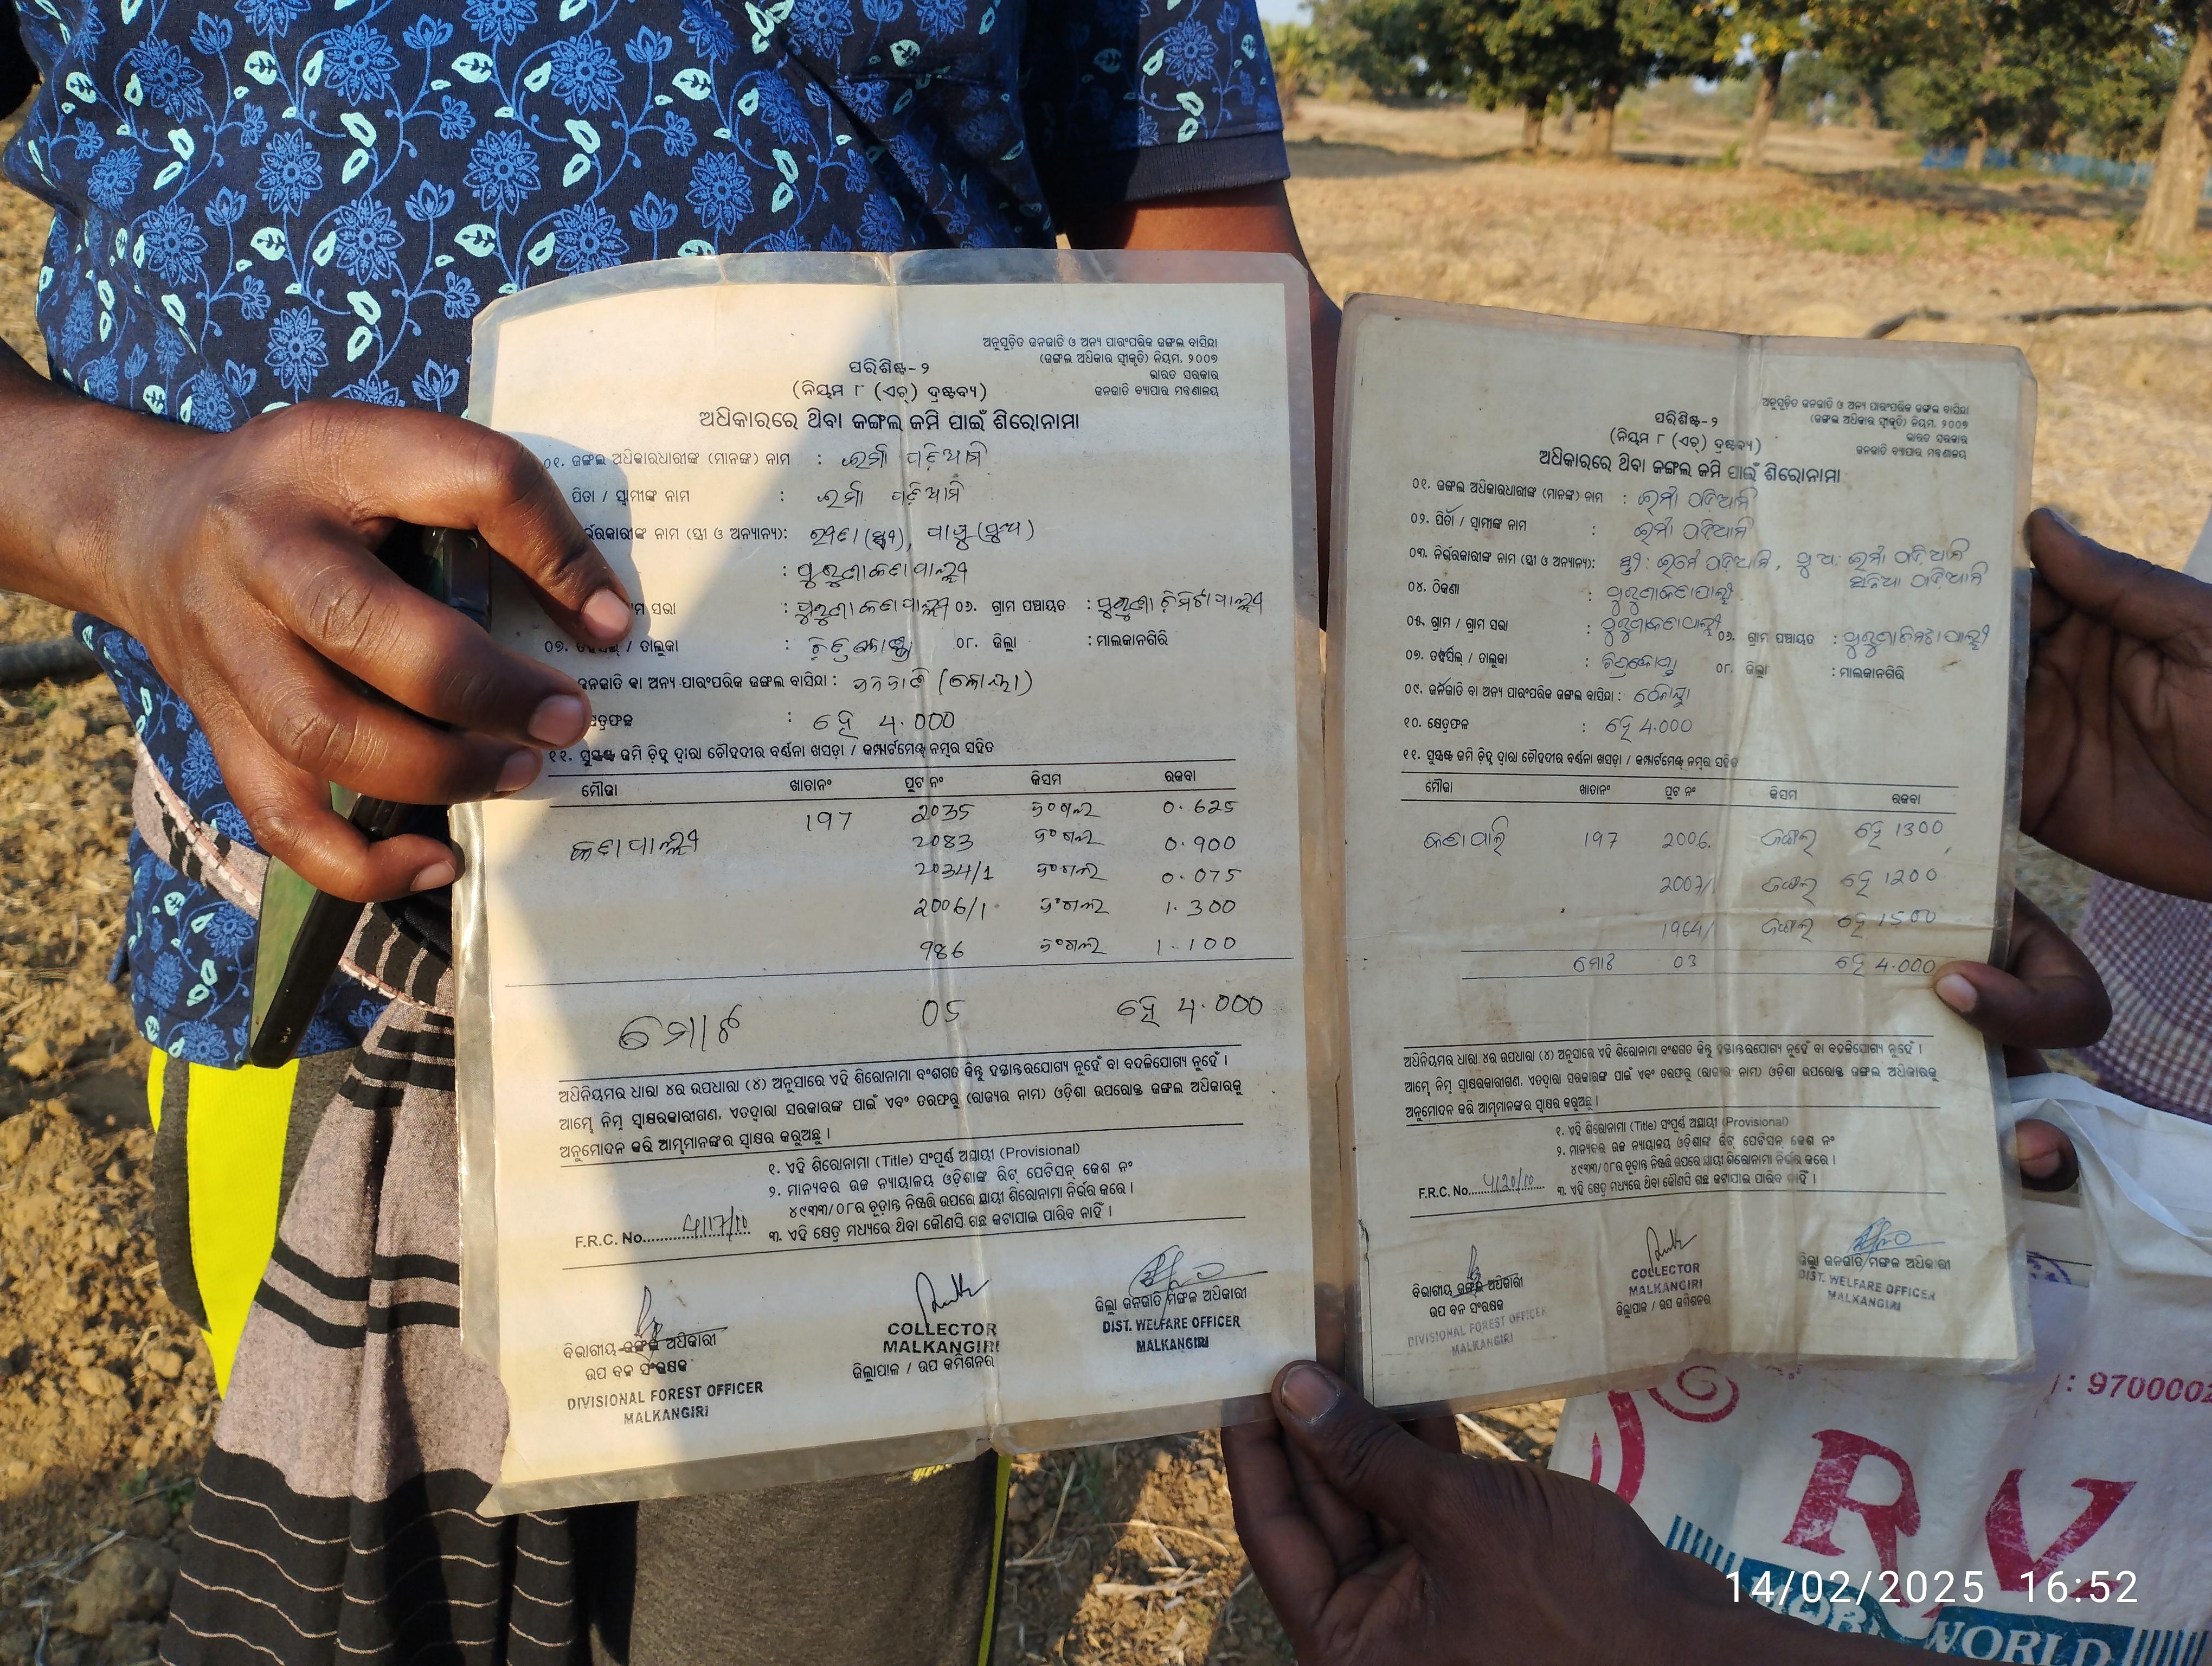 ଅନୁସୂଚିତ ଜନଜାତି ଓ ଅନ୍ୟ ପାରଂପରିକ ଜଙ୍ଗଲ ବାସିନ୍ଦା
(ଜଙ୍ଗଲ ଅଧିକାର ସ୍ୱୀକୃତି) ନିୟମ, ୨୦୦୭
ଭାରତ ସରକାର
ଜନଜାତି ବ୍ୟାପାର ମନ୍ତ୍ରଣାଳୟ
ପରିଶିଷ୍ଟ-୨
(ନିୟମ ୮ (ଏଚ୍) ଦ୍ରଷ୍ଟବ୍ୟ)
ଅଧିକାରରେ ଥିବା ଜଙ୍ଗଲ ଜମି ପାଇଁ ଶିରୋନାମା
୦୧. ଜଙ୍ଗଲ ଅଧିକାରଧାରୀଙ୍କ (ମାନଙ୍କ) ନାମ : ଇର୍ମା ପଡ଼ିଆମି
ପିତା / ସ୍ୱାମୀଙ୍କ ନାମ : ଇର୍ମା ପଡ଼ିଆମି
ନାମ (ସ୍ତ୍ରୀ ଓ ଅନ୍ୟାନ୍ୟ):
:
ସଭା : ୦୬. ଗ୍ରାମ ପଞ୍ଚାୟତ :
୦୭. / ତାଲୁକା : ୦୮. ଜିଲ୍ଲା : ମାଲକାନଗିରି
ଜନଜାତି ବା ଅନ୍ୟ ପାରଂପରିକ ଜଙ୍ଗଲ ବାସିନ୍ଦା :
: ହେ 4.000
୧୧. ସୁସ୍ପଷ୍ଟ ଜମି ଚିହ୍ନ ଦ୍ୱାରା ଚୌହଦୀର ବର୍ଣ୍ଣନା ଖସଡ଼ା / କମ୍ପାର୍ଟମେଣ୍ଟ ନମ୍ବର ସହିତ
ମୌଜା ଖାତାନଂ ପ୍ଲଟ ନଂ କିସମ ରକବା
197 2035 ଜଂଗଲ 0.625
2083 ଜଂଗଲ 0.900
2034/1 ଜଂଗଲ 0.075
2006/1 ଜଂଗଲ 1.300
986 ଜଂଗଲ 1.100
ମୋଟ 05 ହେ 4.000
ଅଧିନିୟମର ଧାରା ୪ର ଉପଧାରା (୪) ଅନୁସାରେ ଏହି ଶିରୋନାମା ବଂଶଗତ କିନ୍ତୁ ହସ୍ତାନ୍ତରଯୋଗ୍ୟ ନୁହେଁ ବା ବଦଳିଯୋଗ୍ୟ ନୁହେଁ ।
ଆମ୍ଭେ ନିମ୍ନ ସ୍ୱାକ୍ଷରକାରୀଗଣ, ଏତଦ୍ୱାରା ସରକାରଙ୍କ ପାଇଁ ଏବଂ ତରଫରୁ (ରାଜ୍ୟର ନାମ) ଓଡ଼ିଶା ଉପରୋକ୍ତ ଜଙ୍ଗଲ ଅଧିକାରକୁ
ଅନୁମୋଦନ କରି ଆମ୍ଭମାନଙ୍କର ସ୍ୱାକ୍ଷର କରୁଅଛୁ ।
୧. ଏହି ଶିରୋନାମା (Title) ସଂପୂର୍ଣ୍ଣ ଅସ୍ଥାୟୀ (Provisional)
୨. ମାନ୍ୟବର ଉଚ୍ଚ ନ୍ୟାୟାଳୟ ଓଡ଼ିଶାଙ୍କ ରିଟ୍ ପେଟିସନ୍ କେଶ ନଂ
୪୯୩୩/୦୮ର ଚୂଡ଼ାନ୍ତ ନିଷ୍ପତ୍ତି ଉପରେ ସ୍ଥାୟୀ ଶିରୋନାମା ନିର୍ଭର କରେ ।
୩. ଏହି କ୍ଷେତ୍ର ମଧ୍ୟରେ ଥିବା କୌଣସି ଗଛ କଟାଯାଇ ପାରିବ ନାହିଁ ।
F.R.C. No. 4117/10
ବିଭାଗୀୟ ଜଙ୍ଗଲ ଅଧିକାରୀ
ଉପ ବନ ସଂରକ୍ଷକ
DIVISIONAL FOREST OFFICER
MALKANGIRI
COLLECTOR
MALKANGIRI
ଜିଲ୍ଲାପାଳ / ଉପ କମିଶନର
ଜିଲ୍ଲା ଜନଜାତି ମଙ୍ଗଳ ଅଧିକାରୀ
DIST. WELFARE OFFICER
MALKANGIRI
ଅନୁସୂଚିତ ଜନଜାତି ଓ ଅନ୍ୟ ପାରଂପରିକ ଜଙ୍ଗଲ ବାସିନ୍ଦା
(ଜଙ୍ଗଲ ଅଧିକାର ସ୍ୱୀକୃତି) ନିୟମ, ୨୦୦୭
ଭାରତ ସରକାର
ଜନଜାତି ବ୍ୟାପାର ମନ୍ତ୍ରଣାଳୟ
ପରିଶିଷ୍ଟ-୨
(ନିୟମ ୮ (ଏଚ୍) ଦ୍ରଷ୍ଟବ୍ୟ)
ଅଧିକାରରେ ଥିବା ଜଙ୍ଗଲ ଜମି ପାଇଁ ଶିରୋନାମା
୦୧. ଜଙ୍ଗଲ ଅଧିକାରଧାରୀଙ୍କ (ମାନଙ୍କ) ନାମ : ଇର୍ମା ପଡିଆମି
୦୨. ପିତା / ସ୍ୱାମୀଙ୍କ ନାମ : ଇର୍ମା ପଡିଆମି
୦୩. ନିର୍ଭରକାରୀଙ୍କ ନାମ (ସ୍ତ୍ରୀ ଓ ଅନ୍ୟାନ୍ୟ):
୦୪. ଠିକଣା :
୦୫. ଗ୍ରାମ / ଗ୍ରାମ ସଭା : ୦୬. ଗ୍ରାମ ପଞ୍ଚାୟତ :
୦୭. ତହସିଲ୍ / ତାଲୁକା : ୦୮. ଜିଲ୍ଲା : ମାଲକାନଗିରି
୦୯. ଜନଜାତି ବା ଅନ୍ୟ ପାରଂପରିକ ଜଙ୍ଗଲ ବାସିନ୍ଦା :
୧୦. କ୍ଷେତ୍ରଫଳ : ହେ 4.000
୧୧. ସୁସ୍ପଷ୍ଟ ଜମି ଚିହ୍ନ ଦ୍ୱାରା ଚୌହଦୀର ବର୍ଣ୍ଣନା ଖସଡ଼ା / କମ୍ପାର୍ଟମେଣ୍ଟ ନମ୍ବର ସହିତ
ମୌଜା ଖାତାନଂ ପ୍ଲଟ ନଂ କିସମ ରକବା
197 2006 ଜଙ୍ଗଲ ହେ 1300
2007/ ଜଙ୍ଗଲ ହେ 1200
1964/ ଜଙ୍ଗଲ ହେ 1500
ମୋଟ 03 ହେ 4.000
ଅଧିନିୟମର ଧାରା ୪ର ଉପଧାରା (୪) ଅନୁସାରେ ଏହି ଶିରୋନାମା ବଂଶଗତ କିନ୍ତୁ ହସ୍ତାନ୍ତରଯୋଗ୍ୟ ନୁହେଁ ବା ବଦଳିଯୋଗ୍ୟ ନୁହେଁ ।
ଆମ୍ଭେ ନିମ୍ନ ସ୍ୱାକ୍ଷରକାରୀଗଣ, ଏତଦ୍ୱାରା ସରକାରଙ୍କ ପାଇଁ ଏବଂ ତରଫରୁ (ରାଜ୍ୟର ନାମ) ଓଡ଼ିଶା ଉପରୋକ୍ତ ଜଙ୍ଗଲ ଅଧିକାରକୁ
ଅନୁମୋଦନ କରି ଆମ୍ଭମାନଙ୍କର ସ୍ୱାକ୍ଷର କରୁଅଛୁ ।
୧. ଏହି ଶିରୋନାମା (Title) ସଂପୂର୍ଣ୍ଣ ଅସ୍ଥାୟୀ (Provisional)
୨. ମାନ୍ୟବର ଉଚ୍ଚ ନ୍ୟାୟାଳୟ ଓଡ଼ିଶାଙ୍କ ରିଟ୍ ପେଟିସନ କେଶ ନଂ
୪୯୩୩/୦୮ର ଚୂଡ଼ାନ୍ତ ନିଷ୍ପତ୍ତି ଉପରେ ସ୍ଥାୟୀ ଶିରୋନାମା ନିର୍ଭର କରେ ।
୩. ଏହି କ୍ଷେତ୍ର ମଧ୍ୟରେ ଥିବା କୌଣସି ଗଛ କଟାଯାଇ ପାରିବ ନାହିଁ ।
F.R.C. No. 4120/10
ବିଭାଗୀୟ ଜଙ୍ଗଲ ଅଧିକାରୀ
ଉପ ବନ ସଂରକ୍ଷକ
DIVISIONAL FOREST OFFICER
MALKANGIRI
COLLECTOR
MALKANGIRI
ଜିଲ୍ଲାପାଳ / ଉପ କମିଶନର
ଜିଲ୍ଲା ଜନଜାତି ମଙ୍ଗଳ ଅଧିକାରୀ
DIST. WELFARE OFFICER
MALKANGIRI
: 9700002
R V
WORLD
14/02/2025 16:52